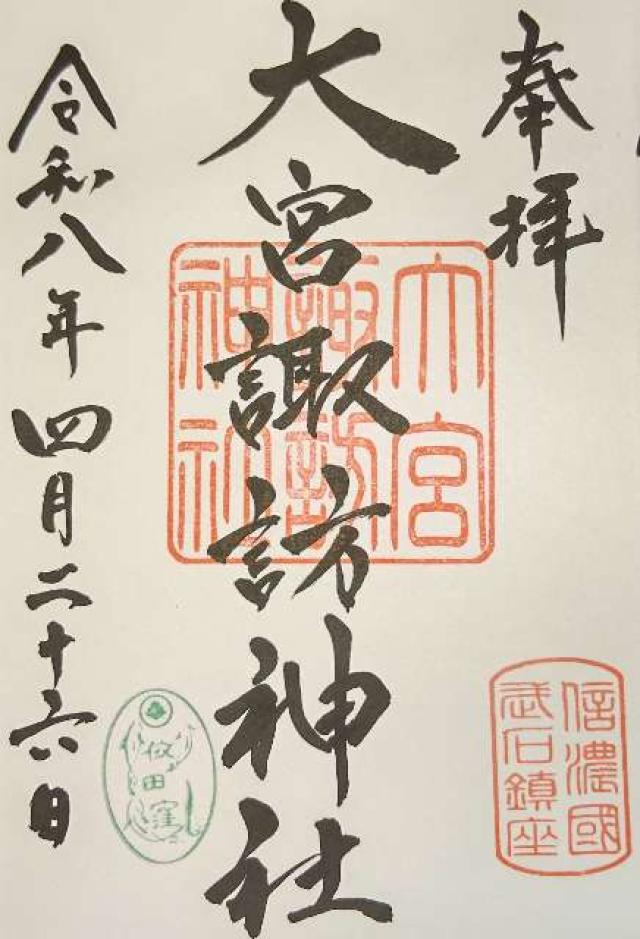 奉拝
大宮諏訪神社
大宮
諏訪
神社
信濃國
武石鎮座
依田窪
令和八年四月二十六日